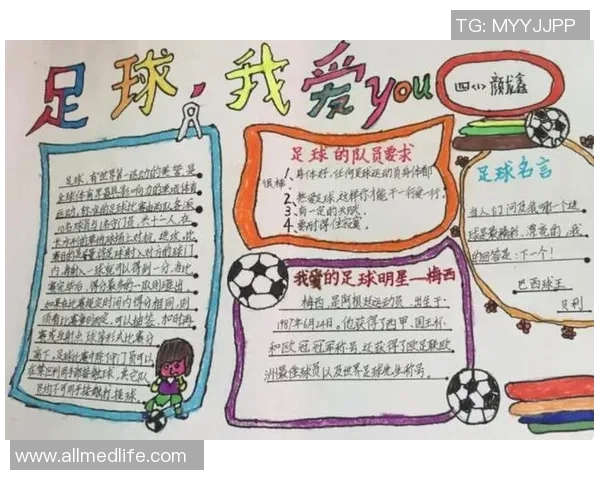 TG: MYYJJPP
足球,我爱you
四(1) 颜龙鑫
足球,有“世界第一运动”的美誉,是
全球体育界最具影响力的单项体育
运动,标准的足球比赛由两队各派
10名球员与1名守门员,共十一人,在
长方形的草地球场上对抗、进攻,比
赛目的是尽量将足球射入对方的球门
内,每射入一球就可以得到一分,当比
赛完毕后,得分最多的一队则胜出,
如果在比赛规定时间内得分相同,则
须看比赛章则而定,可以抽签、加时再
赛或互射点球等形式比赛分
高下,足球比赛中除了守门员可以
在禁区利用手部接触足球,其它队
员均不可用手接触打球。
足球的队员要求
1、身体好,任何足球运动员身体都
很棒。
2、热爱足球,这样你才能干一行爱一行。
3、有一定的天赋。
4、要耐得住寂寞。
我爱的足球明星—梅西
梅西,是阿根廷运动员,出生于
1987年6月24日。他获得了西甲、国王杯
和欧冠冠军称号,还获得了欧足联欧
洲最佳球员以及世界足球先生称号。
足球名言
当人们问及我哪一个进
球是最精彩、漂亮的,我
的回答是:下一个!
巴西球王
贝利
www.allmedlife.com